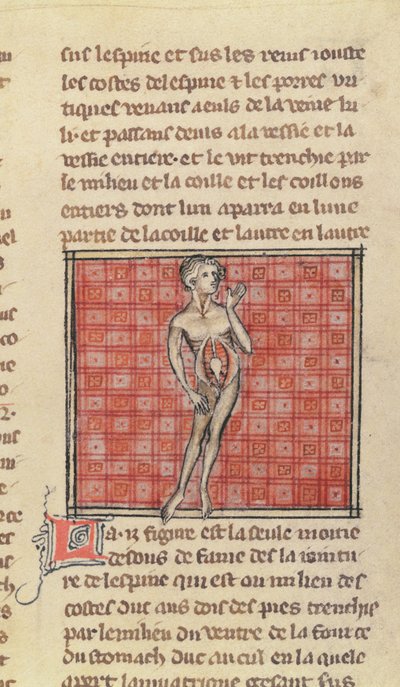 sus lespine et sus les reins iouste
les costes delespine ⁊ les porres vri
tiques venans a euls de la veine ki
li· et passans deuis a la vessie et la
vessie entiere· et le vit trenchie par
le milieu et la coille et les coillons
entiers dont lun aparra en lune
partie de la coille et lautre en lautre
La ·12· figure est la seule moitie
desous de fame des la iointu
re de lespine qui est ou milieu des
costes duc aus dois des pies trenchie
par le milieu du ventre de la fource
du stomach duc au cul en la quele
apert la matrique gesant sus